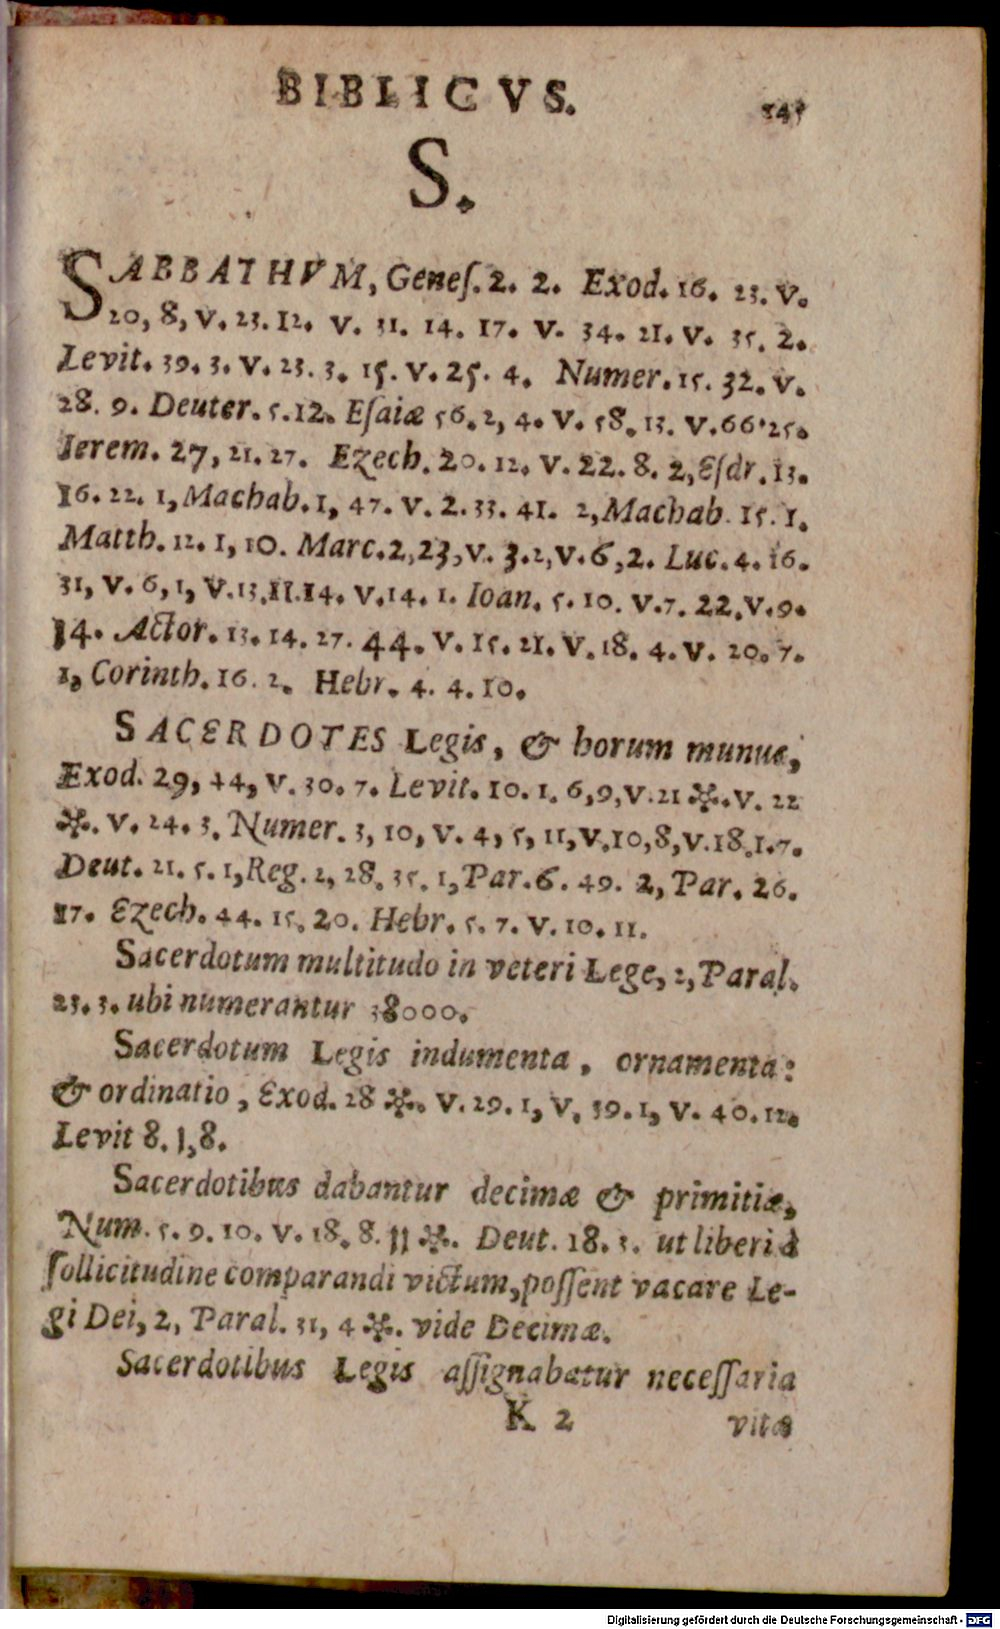 BIBLICVS.
S.
SABBATHVM, Geneſ. 2. 2. Exod. 16. 23. V.
20, 8, V. 23. 12. V. 31. 14. 17. V. 34. 21. V. 35. 2.
Levit. 39. 3. V. 23. 3. 15. V. 25. 4. Numer. 15. 32. V.
28. 9. Deuter. 5. 12. Eſaiæ 56. 2, 4. V. 58. 13. V. 66. 25.
Jerem. 27, 21. 27. Ezech. 20. 12. V. 22. 8. 2, Eſdr. 13.
16. 22. 1, Machab. 1, 47. V. 2. 33. 41. 2, Machab. 15. 1.
Matth. 12. 1, 10. Marc. 2, 23, V. 3. 2, V. 6, 2. Luc. 4. 16.
31, V. 6, 1, V. 13. 11. 14. V. 14. 1. Ioan. 5. 10. V. 7. 22. V. 9.
14. Actor. 13. 14. 27. 44. V. 15. 21. V. 18. 4. V. 20. 7.
1, Corinth. 16. 2. Hebr. 4. 4. 10.
SACERDOTES Legis, & horum munus,
Exod. 29, 44, V. 30. 7. Levit. 10. 1. 6, 9, V. 21 *. V. 22
*. V. 24. 3. Numer. 3, 10, V. 4, 5, 11, V. 10, 8, V. 18. 1. 7.
Deut. 21. 5. 1, Reg. 2, 28. 35. 1, Par. 6. 49. 2, Par. 26.
17. Ezech. 44. 15. 20. Hebr. 5. 7. V. 10. 11.
Sacerdotum multitudo in veteri Lege, 2, Paral.
23. 3. ubi numerantur 38000.
Sacerdotum Legis indumenta, ornamenta:
& ordinatio, Exod. 28 *. V. 29. 1, V. 39. 1, V. 40. 12.
Levit 8. 1, 8.
Sacerdotibus dabantur decimæ & primitiæ,
Num. 5. 9. 10. V. 18. 8. 11 *. Deut. 18. 3. ut liberi à
ſollicitudine comparandi victum, poſſent vacare Le-
gi Dei, 2, Paral. 31, 4 *. vide Decimæ.
Sacerdotibus Legis aſſignabatur neceſſaria
K 2
vitæ
Digitalisierung gefördert durch die Deutsche Forschungsgemeinschaft - DFG